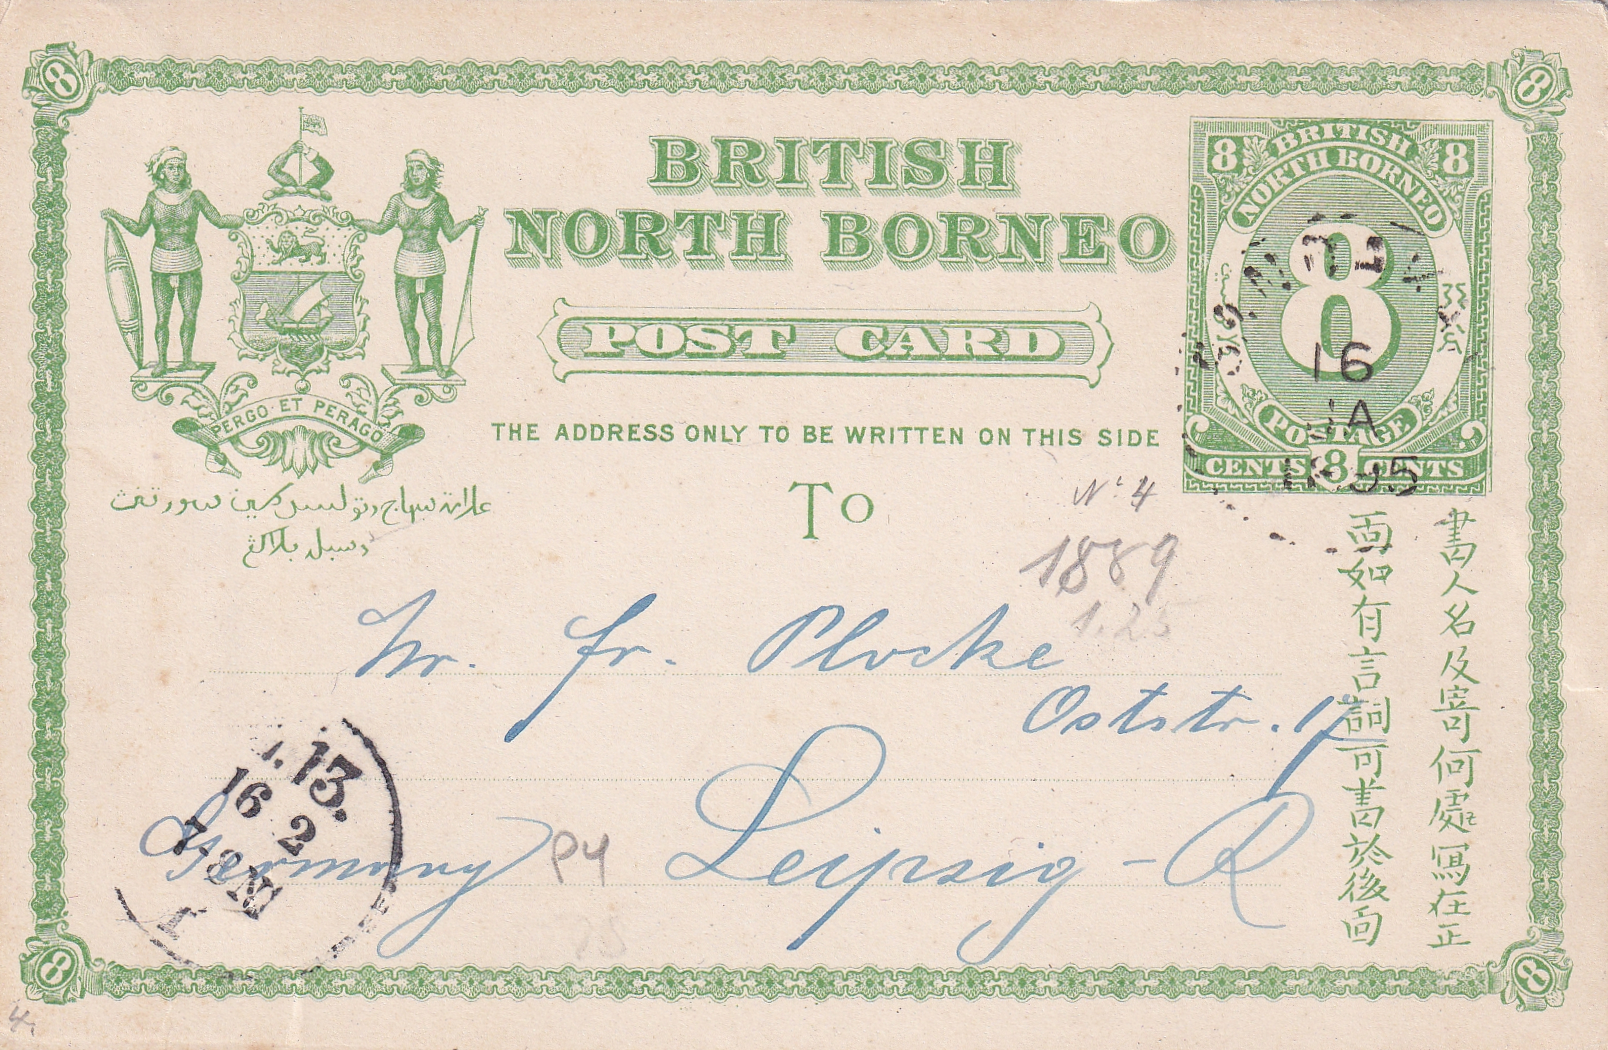 8
8
BRITISH
NORTH BORNEO
POST CARD
THE ADDRESS ONLY TO BE WRITTEN ON THIS SIDE
TO
PERGO·ET PERAGO
8 BRITISH 8
NORTH BORNEO
8
POSTAGE
CENTS 8 CENTS
16
JA
1895
書人名及寄何處寫在正
面如有言詞可書於後面
No 4
1889
1.25
Hr. Fr. Plocke
Oststr. 17
Leipzig - R
Germany
P4
13.
16
2
7-8 N
8
8
4